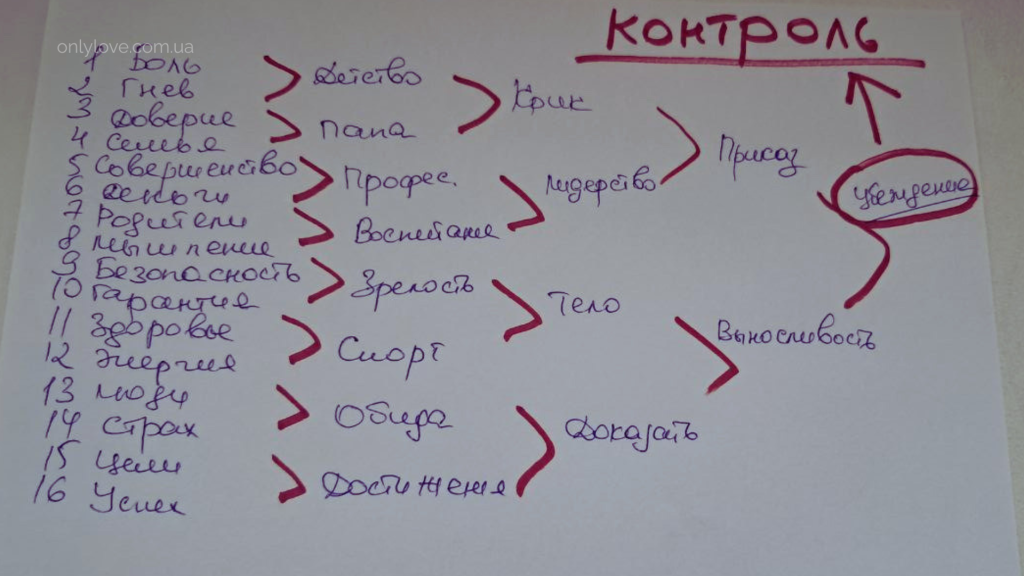 onlylove.com.ua
КОНТРОЛЬ
1 Боль
2 Гнев
3 Доверие
4 Семья
5 Совершенство
6 Деньги
7 Родители
8 Мышление
9 Безопасность
10 Гарантия
11 Здоровье
12 Энергия
13 Люди
14 Страх
15 Цели
16 Успех
Детство
Папа
Профес.
Воспитание
Зрелость
Спорт
Обида
Достижения
Крик
Лидерство
Тело
Доказать
Приказ
Выносливость
Убеждение